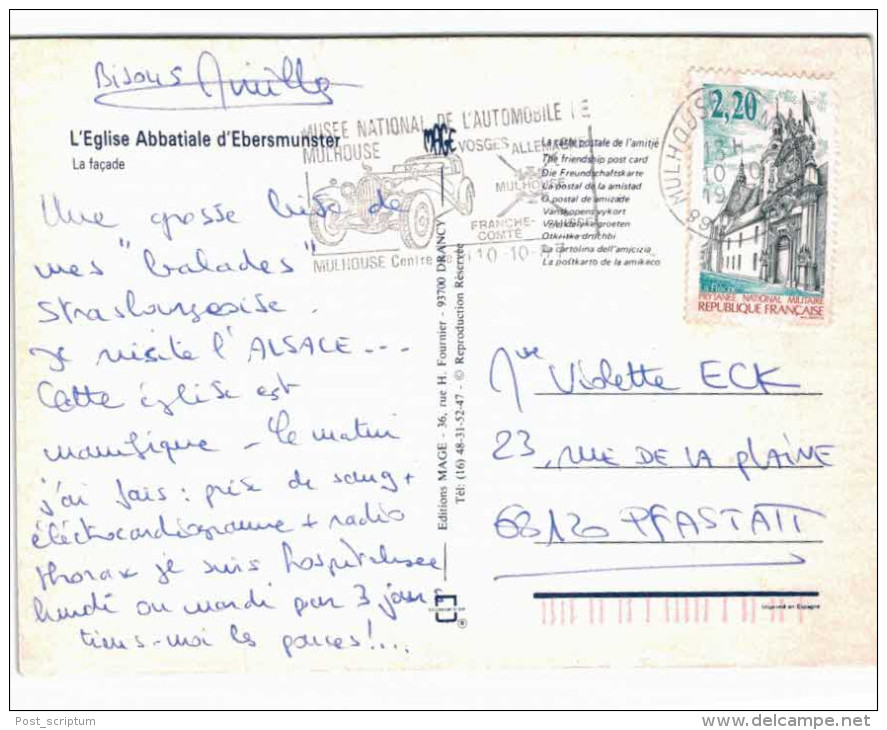 Bisous
L'Eglise Abbatiale d'Ebersmunster
La façade
Une grosse bise de
mes "balades"
strasbourgeoise.
Je visite l'ALSACE...
Cette église est
magnifique - Le matin
j'ai fais : prise de sang +
éléctrocardiogramme + radio
thorax je suis hospitalisée
lundi ou mardi pour 3 jours
tiens-moi les pouces!...
MUSEE NATIONAL DE L'AUTOMOBILE
MULHOUSE
MAGE
VOSGES
ALLEMAGNE
MULHOUSE
FRANCHE-
COMTÉ
SUISSE
MULHOUSE Centre
10-10-89
Editions MAGE - 36, rue H. Fournier - 93700 DRANCY
Tél: (16) 48-31-52-47 - © Reproduction Réservée
La carte postale de l'amitié
The friendship post card
Die Freundschaftskarte
La postal de la amistad
O postal de amizade
Vanskapens vykort
Vriendelijke groeten
Otkritka druzhbi
La cartolina dell'amicizia
La poŝtkarto de la amikeco
MULHOUSE
13 H
10-10
19
89
2,20
La Flèche
PRYTANÉE NATIONAL MILITAIRE
REPUBLIQUE FRANÇAISE
Violette ECK
23, RUE DE LA PLAINE
68120 PFASTATT
Imprimé en Espagne
®
Post_scriptum
www.delcampe.net